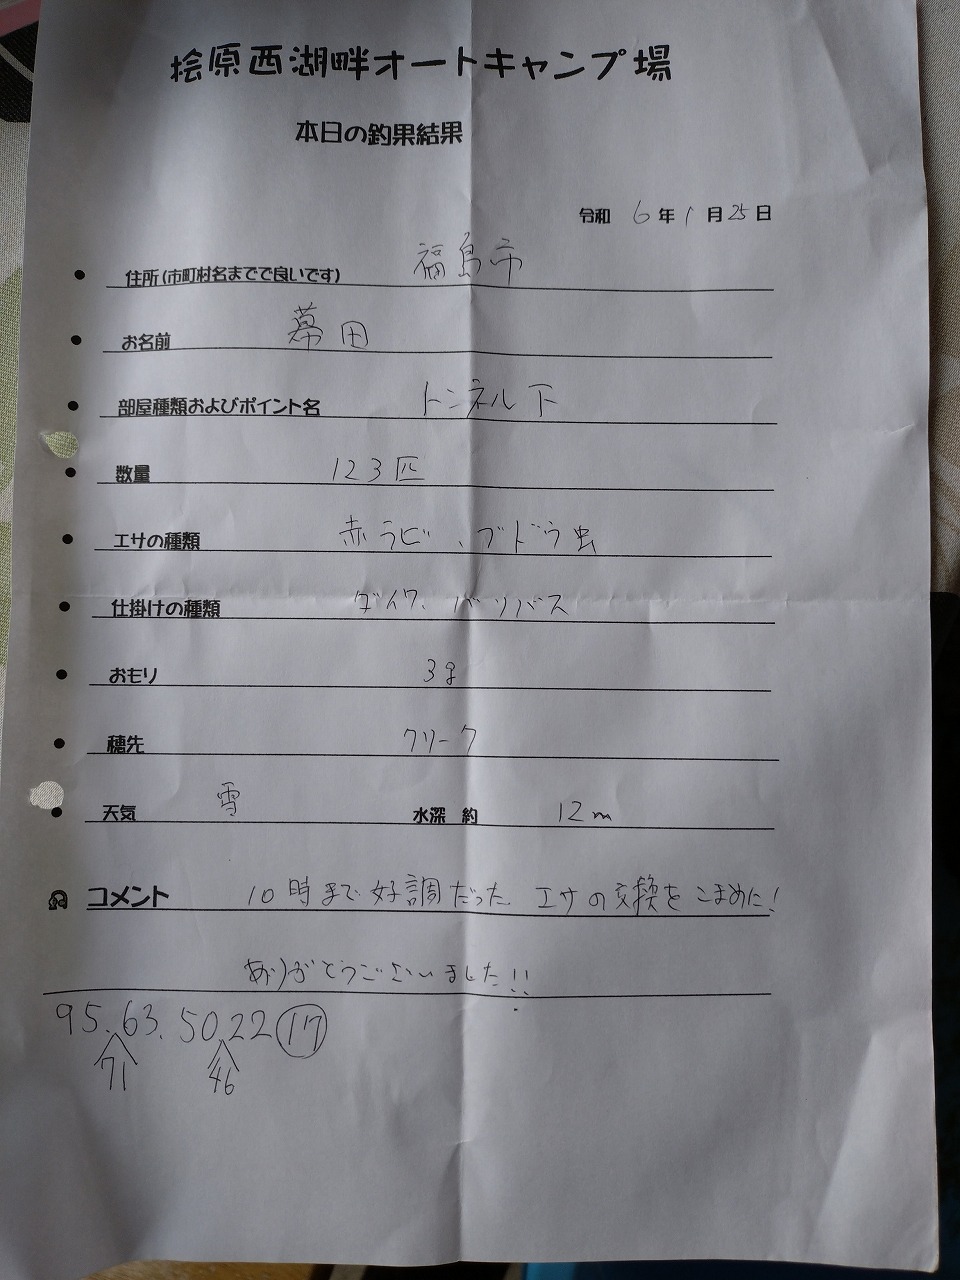 桧原西湖畔オートキャンプ場
本日の釣果結果
令和 6年1月25日
住所(市町村名までで良いです) 福島市
お名前 幕田
部屋種類およびポイント名 トンネル下
数量 123匹
エサの種類 赤ラビ、ブドウ虫
仕掛けの種類 ダイワ、バリバス
おもり 3g
穂先 クリーク
天気 雪 水深 約 12m
コメント 10時まで好調だった エサの交換をこまめに!
ありがとうございました!!
95.63.50.22 17
71 46